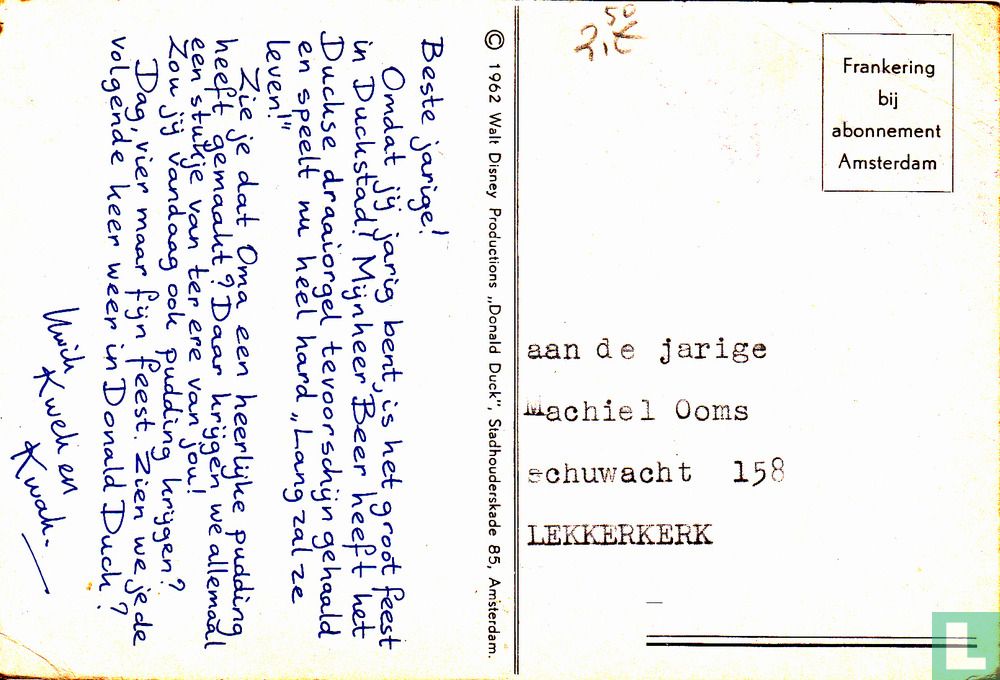 Beste jarige!
Omdat jij jarig bent, is het groot feest
in Duckstad! Mijnheer Beer heeft het
Duckse draaiorgel tevoorschijn gehaald
en speelt nu heel hard „Lang zal ze
leven!"
Zie je dat Oma een heerlijke pudding
heeft gemaakt? Daar krijgen we allemaal
een stukje van ter ere van jou!
Zou jij vandaag ook pudding krijgen?
Dag, vier maar fijn feest. Zien we je de
volgende keer weer in Donald Duck?
Kwik
Kwek en
Kwak.
© 1962 Walt Disney Productions „Donald Duck", Stadhouderskade 85, Amsterdam.
50
Frankering
bij
abonnement
Amsterdam
aan de jarige
Machiel Ooms
schuwacht 158
LEKKERKERK
L